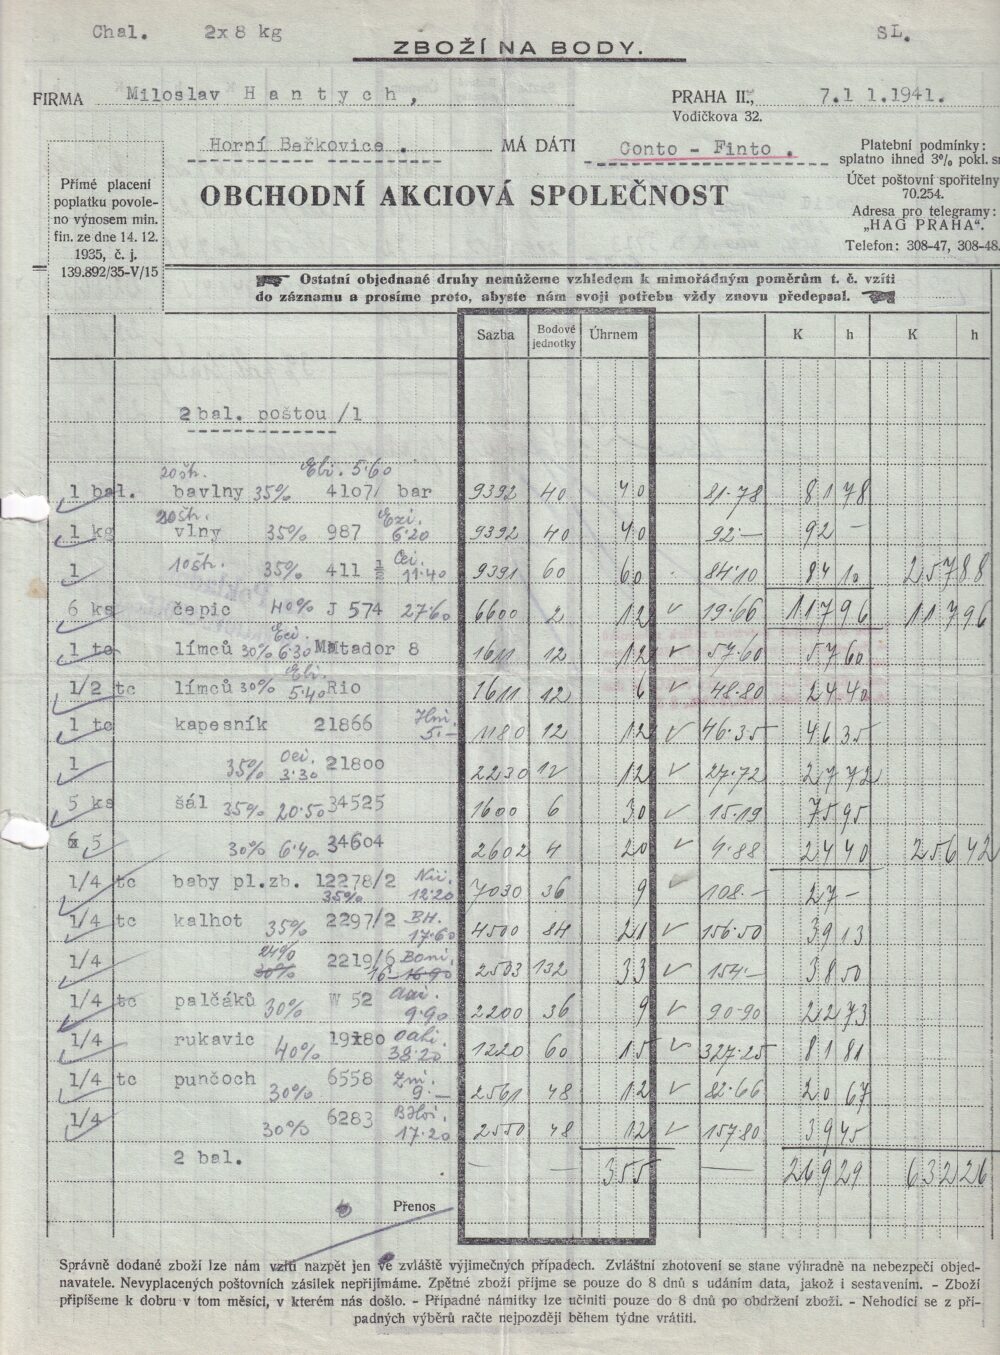 Chal. 2x8 kg SL.
ZBOŽÍ NA BODY.
FIRMA Miloslav Hantych, PRAHA II., 7.11.1941.
Vodičkova 32.
Horní Beřkovice. MÁ DÁTI Conto - Finto.
Platební podmínky:
splatno ihned 3% pokl.
Účet poštovní spořitelny
70.254.
Adresa pro telegramy:
„HAG PRAHA“.
Telefon: 308-47, 308-48.
Přímé placení
poplatku povole-
no výnosem min.
fin. ze dne 14. 12.
1935, č. j.
139.892/35-V/15
OBCHODNÍ AKCIOVÁ SPOLEČNOST
Ostatní objednané druhy nemůžeme vzhledem k mimořádným poměrům t. č. vzíti
do záznamu a prosíme proto, abyste nám svoji potřebu vždy znovu předepsal.
Sazba Bodové jednotky Úhrnem K h K h
2 bal. poštou /1
20 št. 5·60
1 bal. bavlny 35% 4107/ bar 9392 40 40 81·78 81 78
20 št.
1 kg vlny 35% 987 6·20 9392 40 40 92– 92 –
1 10 št. 35% 411 11·40 9391 60 60 84·10 84 10 257 88
6 ks čepic 40% J 574 27·60 6600 2 12 19·66 117 96 117 96
1 tc límců 30% 6·30 Matador 8 1611 12 12 57·60 57 60
1/2 tc límců 30% 5·40 Rio 1611 12 6 48·80 24 40
1 tc kapesník 21866 5.– 1180 12 12 46·35 46 35
1 35% 3·30 21800 2230 12 12 27·72 27 72
5 ks šál 35% 20·50 34525 1600 6 30 15·19 75 95
5 30% 6·40 34604 2602 4 20 4·88 24 40 256 42
1/4 tc baby pl.zb. 12278/2 35% 12·20 7030 36 9 108.– 27 –
1/4 tc kalhot 35% 2297/2 BH. 17·60 4500 84 21 156·50 39 13
1/4 24% 30% 2219/6 Boni. 16– 16·90 2503 132 33 154.– 38 50
1/4 tc palčáků 30% W 52 9·90 2200 36 9 90·90 22 73
1/4 rukavic 40% 19180 38·20 1220 60 15 327·25 81 81
1/4 tc punčoch 30% 6558 9.– 2561 48 12 82·66 20 67
1/4 30% 6283 17·20 2550 48 12 157·80 39 45
2 bal. 355 269 29 632 26
Přenos
Správně dodané zboží lze nám vzíti nazpět jen ve zvláště výjimečných případech. Zvláštní zhotovení se stane výhradně na nebezpečí objed-
navatele. Nevyplacených poštovních zásilek nepřijímáme. Zpětné zboží přijme se pouze do 8 dnů s udáním data, jakož i sestavením. - Zboží
připíšeme k dobru v tom měsíci, v kterém nás došlo. - Případné námitky lze učiniti pouze do 8 dnů po obdržení zboží. - Nehodící se z pří-
padných výběrů račte nejpozději během týdne vrátiti.